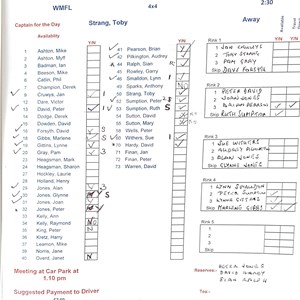 WMFL
4x4
2:30
Captain for the Day
Strang, Toby
Away
Availability
Y/N
Y/N
1 Ashton, Mike
2 Ashton, Myff
3 Badman, Ian
4 Beeson, Mike
5 Catlin, Phil
7 Champion, Derek
8 Cruwys, Jan
12 Dare, Victor
13 David, Peter
14 Dodge, Derek
Dowden, David
18 Forsyth, David
Gibbs, Marlene
19 Gibbins, Lynne
20 Gray, Pam
23 Heagman, Mark
Heagman, Sharon
27 Hockley, Laurie
28 Holland, Henry
29 Jones, Alan
30 Jones, Glynne
31 Jones, Joan
32 Jones, Peter
33 Kelly, Ann
34 Kelly, Raymond
35 King, Peter
36 Kretz, Harry
37 Learmon, Mike
38 Norris, Jane
40 Overd, Janet
41 Pearson, Brian
42 Pilkington, Audrey
44 Ralph, Sian
45 Rowley, Garry
46 Smalldon, Lynn
50 Sparks, Anthony
51 Strang, Toby
52 Sumption, Peter
53 Sumption, Ruth
54 Sutton, David
55 Sutton, Mary
58 Wells, Pene
60 Withers, Sue
70 Hardy, David
71 Finan, Peter
72 Finan, Warren
Row 1
1 JAN CRUWYS
2 TOBY STRANG
3 PAM GRAY
Skip DAVE FORSYTH
1 PETER DAVID
2 JOAN JONES
3 BRIAN PEARSON
Skip RUTH SUMPTION
1 SUE WITHERS
2 AUDREY PILKINGTON
3 ALAN JONES
Skip GLYNNE JONES
Row 4
1 LYNN SMALLDON
2 PETER SUMPTION
3 LYNNE GIBBINS
Skip MARLENE GIBBS
Row 5
1
2
3
Skip
Meeting at Car Park at
1.10 pm
Suggested Payment to Driver
Reserves:- PETER JONES
DAVID HARDY
SIAN RALPH